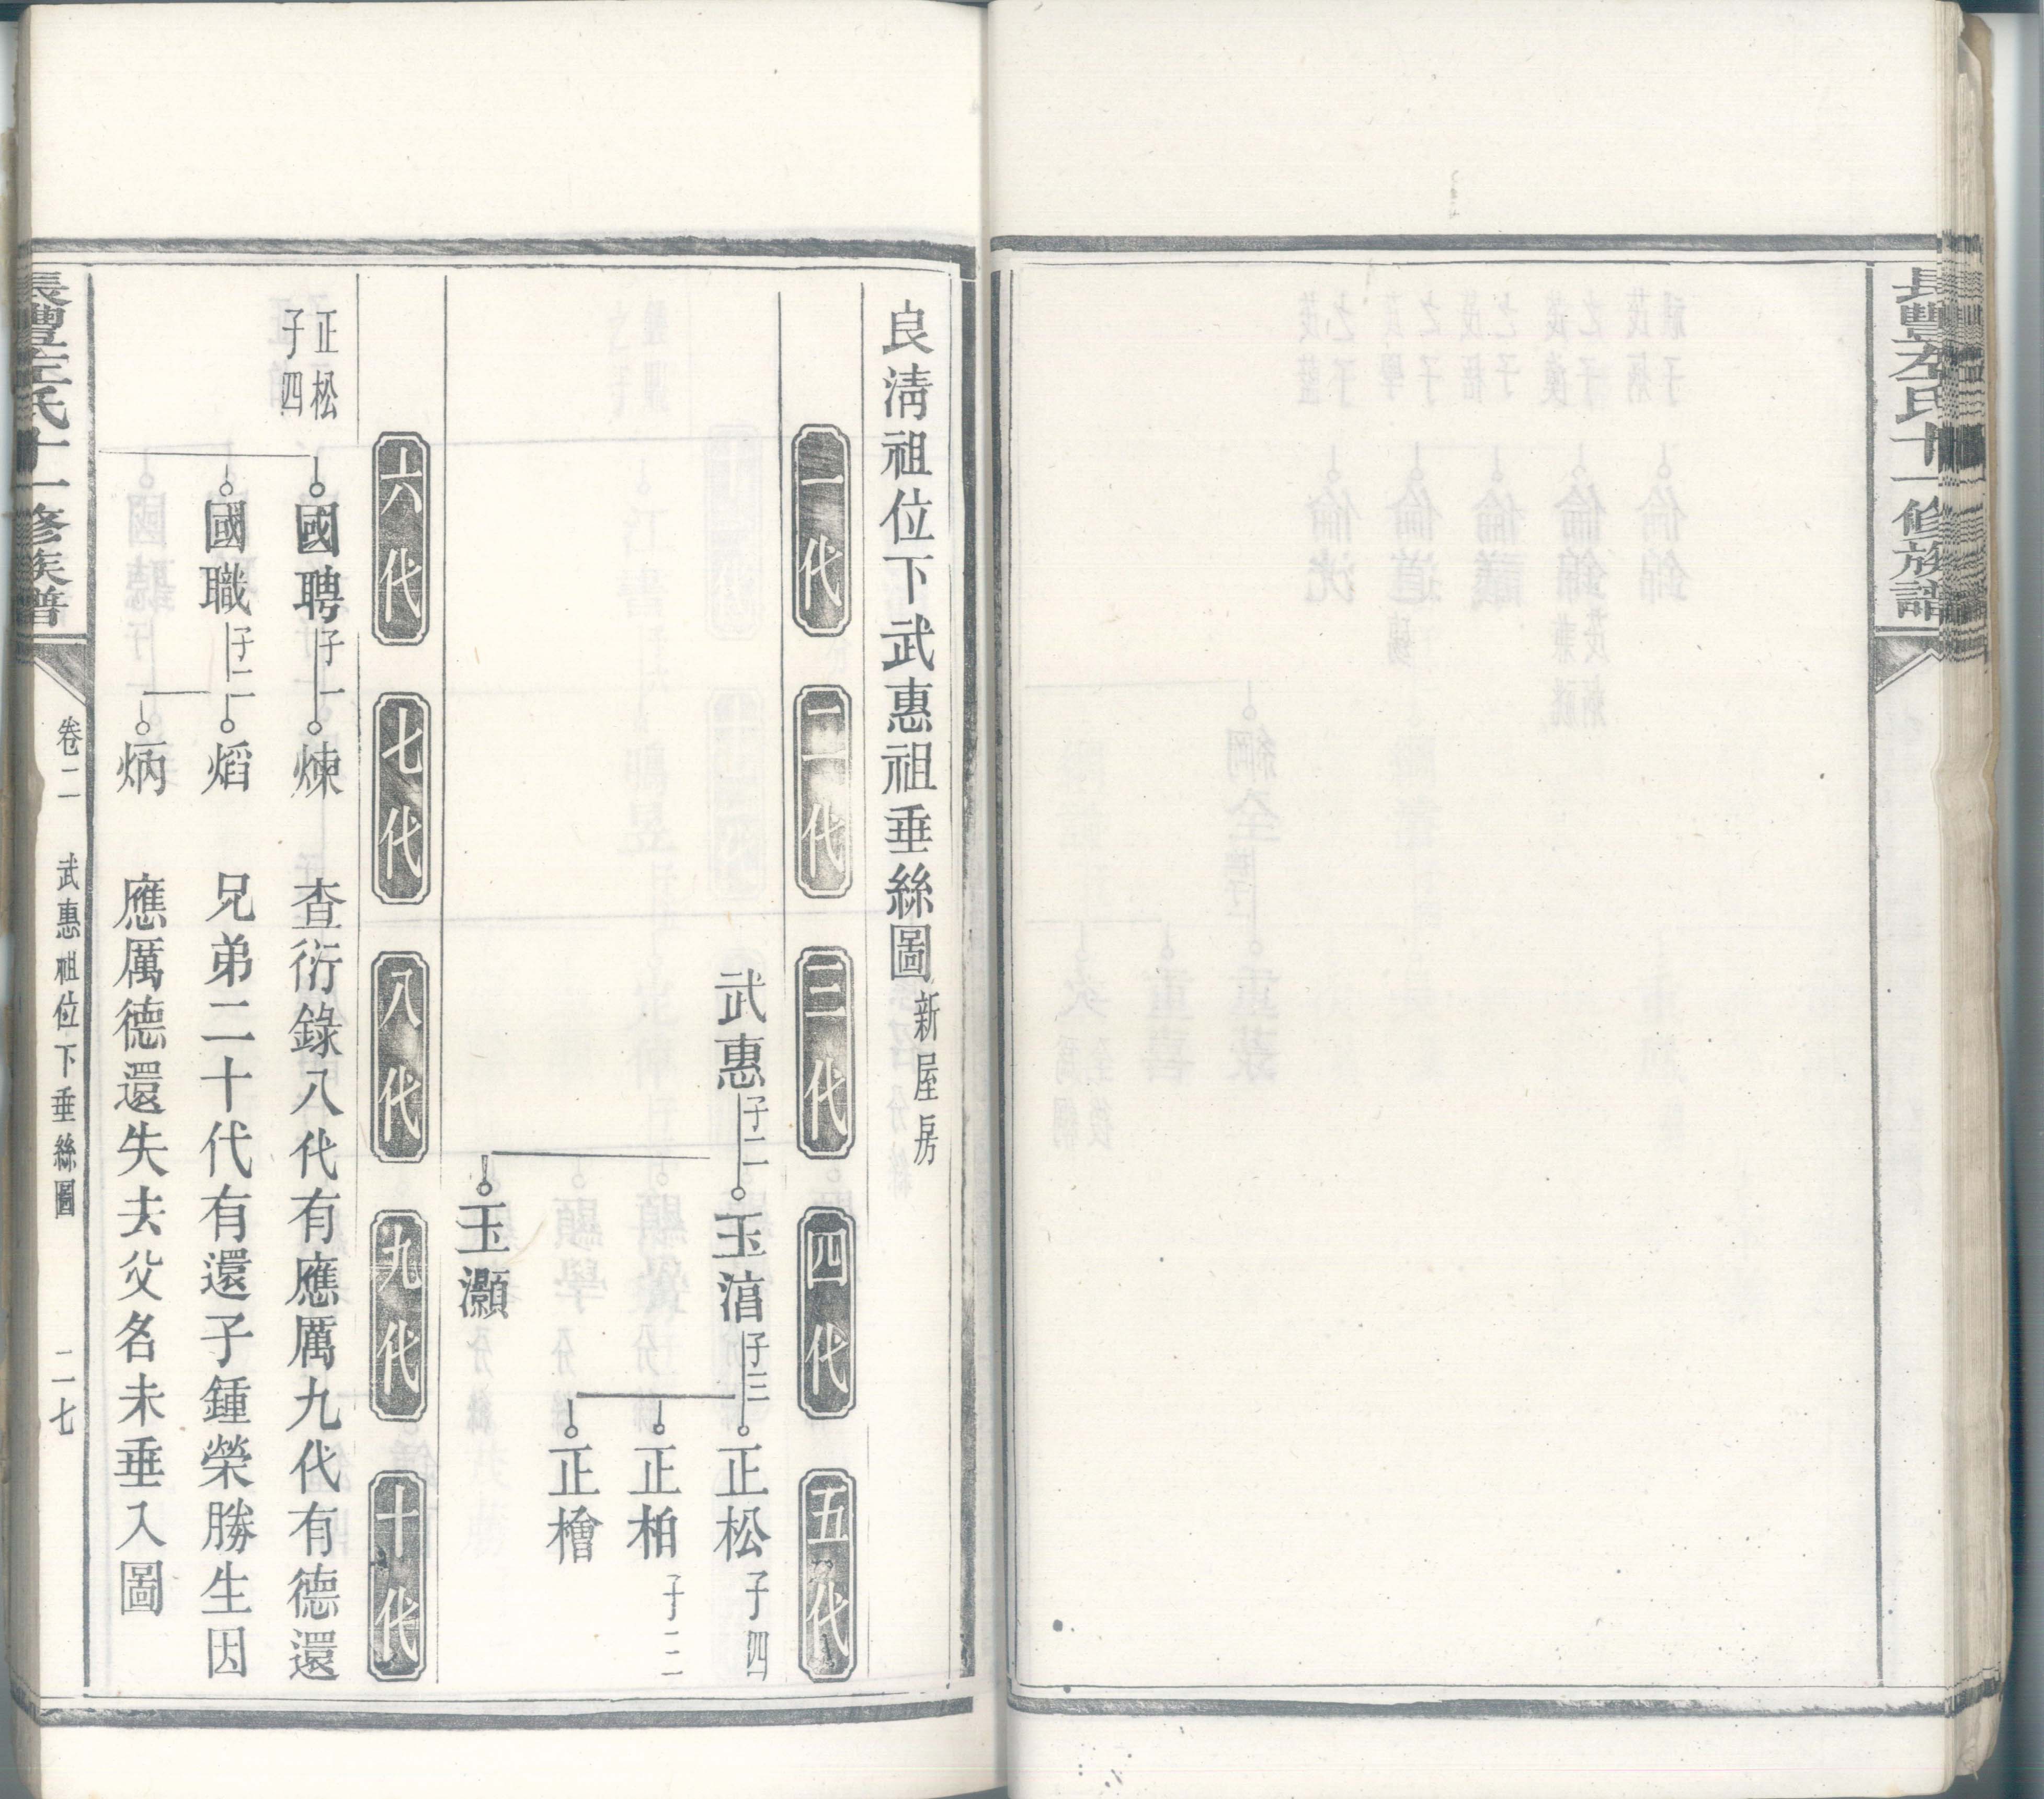 長豐左氏十一修族譜
良淸祖位下武惠祖垂絲圖 新屋房
一代 二代 三代 四代 五代
武惠 子二 玉湆 子三 正松 子四
正柏 子二
正檜
玉灝
六代 七代 八代 九代 十代
正松
子四
國聘 子一 煉 查衍錄八代有應厲九代有德還
國職 子二 熖 兄弟二十代有還子鍾榮勝生因
炳 應厲德還失去父名未垂入圖
長豐左氏十一修族譜
卷二 武惠祖位下垂絲圖 二七